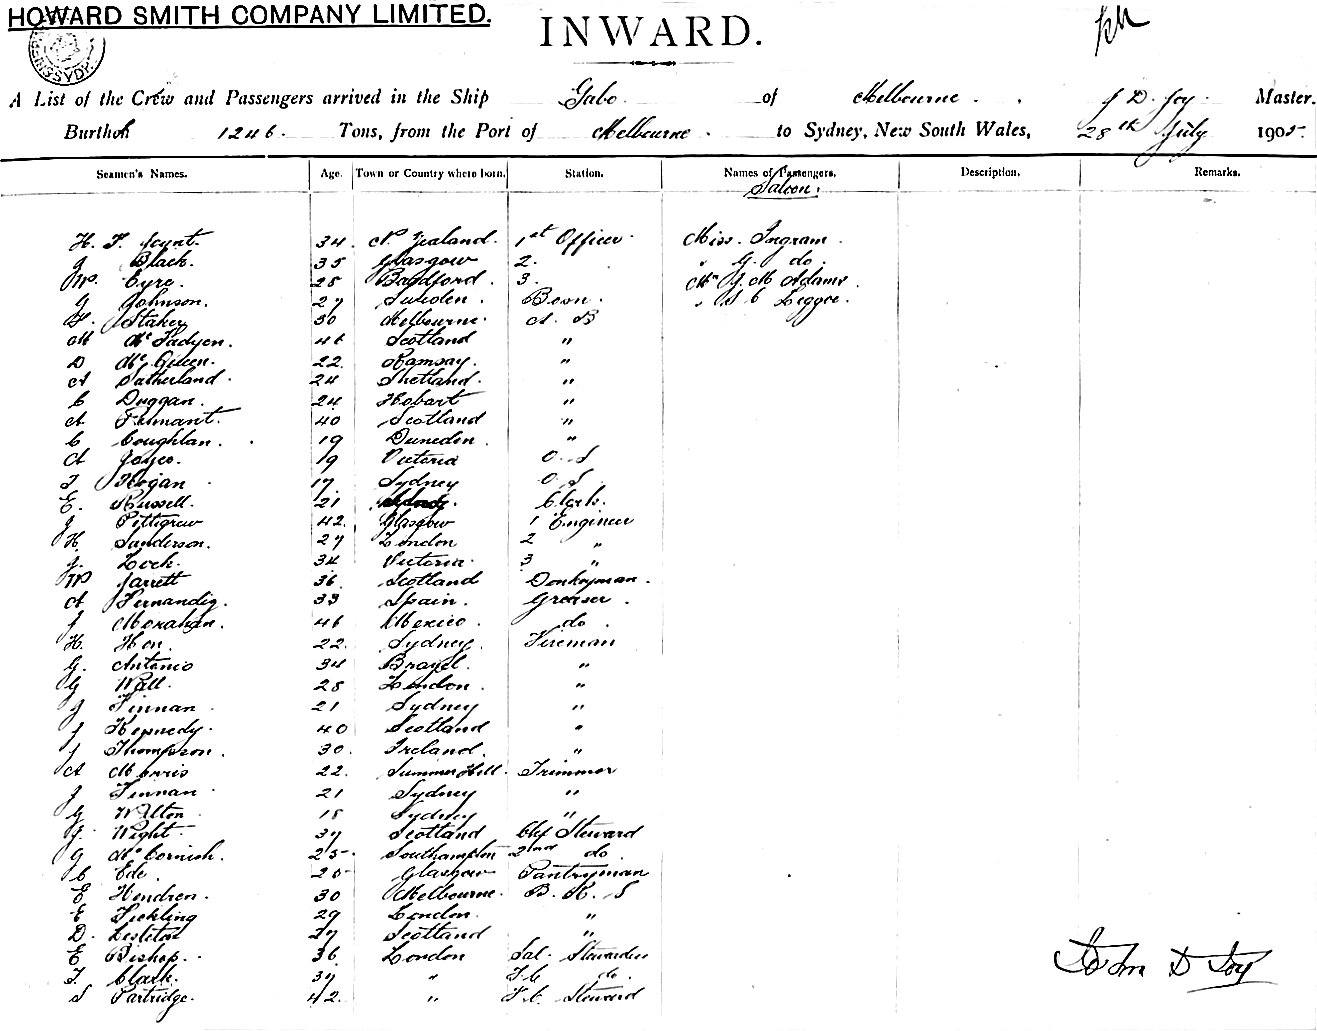 HOWARD SMITH COMPANY LIMITED.
INWARD.
A List of the Crew and Passengers arrived in the Ship Gabo of Melbourne J D. Joy Master.
Burthen 1246 Tons, from the Port of Melbourne to Sydney, New South Wales, 28th July 1905
Seamen's Names. Age. Town or Country where born. Station. Names of Passengers. Description. Remarks.
Saloon.
34 N Zealand 1st Officer Miss Ingram
J Black 35 Glasgow 2. " G. do
W. Eyre 28 Bradford 3. Mr J M Adams
J Johnson 27 Sweden Bosn
Staker 30 Melbourne A. B
M McFadyen 46 Scotland "
D McQueen 22 Ramsay "
A Sutherland 24 Shetland "
C Duggan 24 Hobart "
A Tennant 40 Scotland "
C Coughlan 19 Duneden "
A Joyce 19 Victoria O. S
T Hogan 17 Sydney O S
E. Russell 21 Clerk
J Pettigrew 42 Glasgow 1 Engineer
H Sanderson 27 London 2 "
J. Lock 34 Victoria 3 "
W Jarrett 36 Scotland Donkeyman
A Fernandig 33 Spain Greaser
J Monahan 46 Mexico do
H. Hon 22 Sydney Fireman
G. Antonio 34 Brazil "
G Wall 28 London "
J Finnan 21 Sydney "
J Kennedy 40 Scotland "
J Thompson 30 Ireland "
A Morris 22 Summer Hill Trimmer
J Finnan 21 Sydney "
G Wilton 18 Sydney "
J. Wight 37 Scotland Chf Steward
G McCornish 25 Southampton 2nd do
C Ede 25 Glasgow Pantryman
E Hendren 30 Melbourne B. R. S
E Fickling 29 London "
D. 27 Scotland "
E Bishop 36 London Sal. Stewardess
T. Clark 37 " F. C do
S Partridge 42 " F. C. Steward
John D Joy